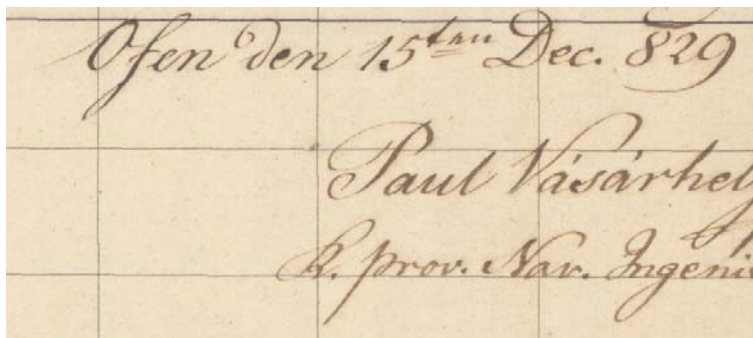 Ofen den 15ten Dec. 829
Paul Vásárhely
K. prov. Nav. Ingeni